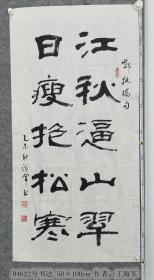 江秋逼山翠
日瘦抱松寒
郑板桥句
04622号书法 50×100cm 作者：王海军